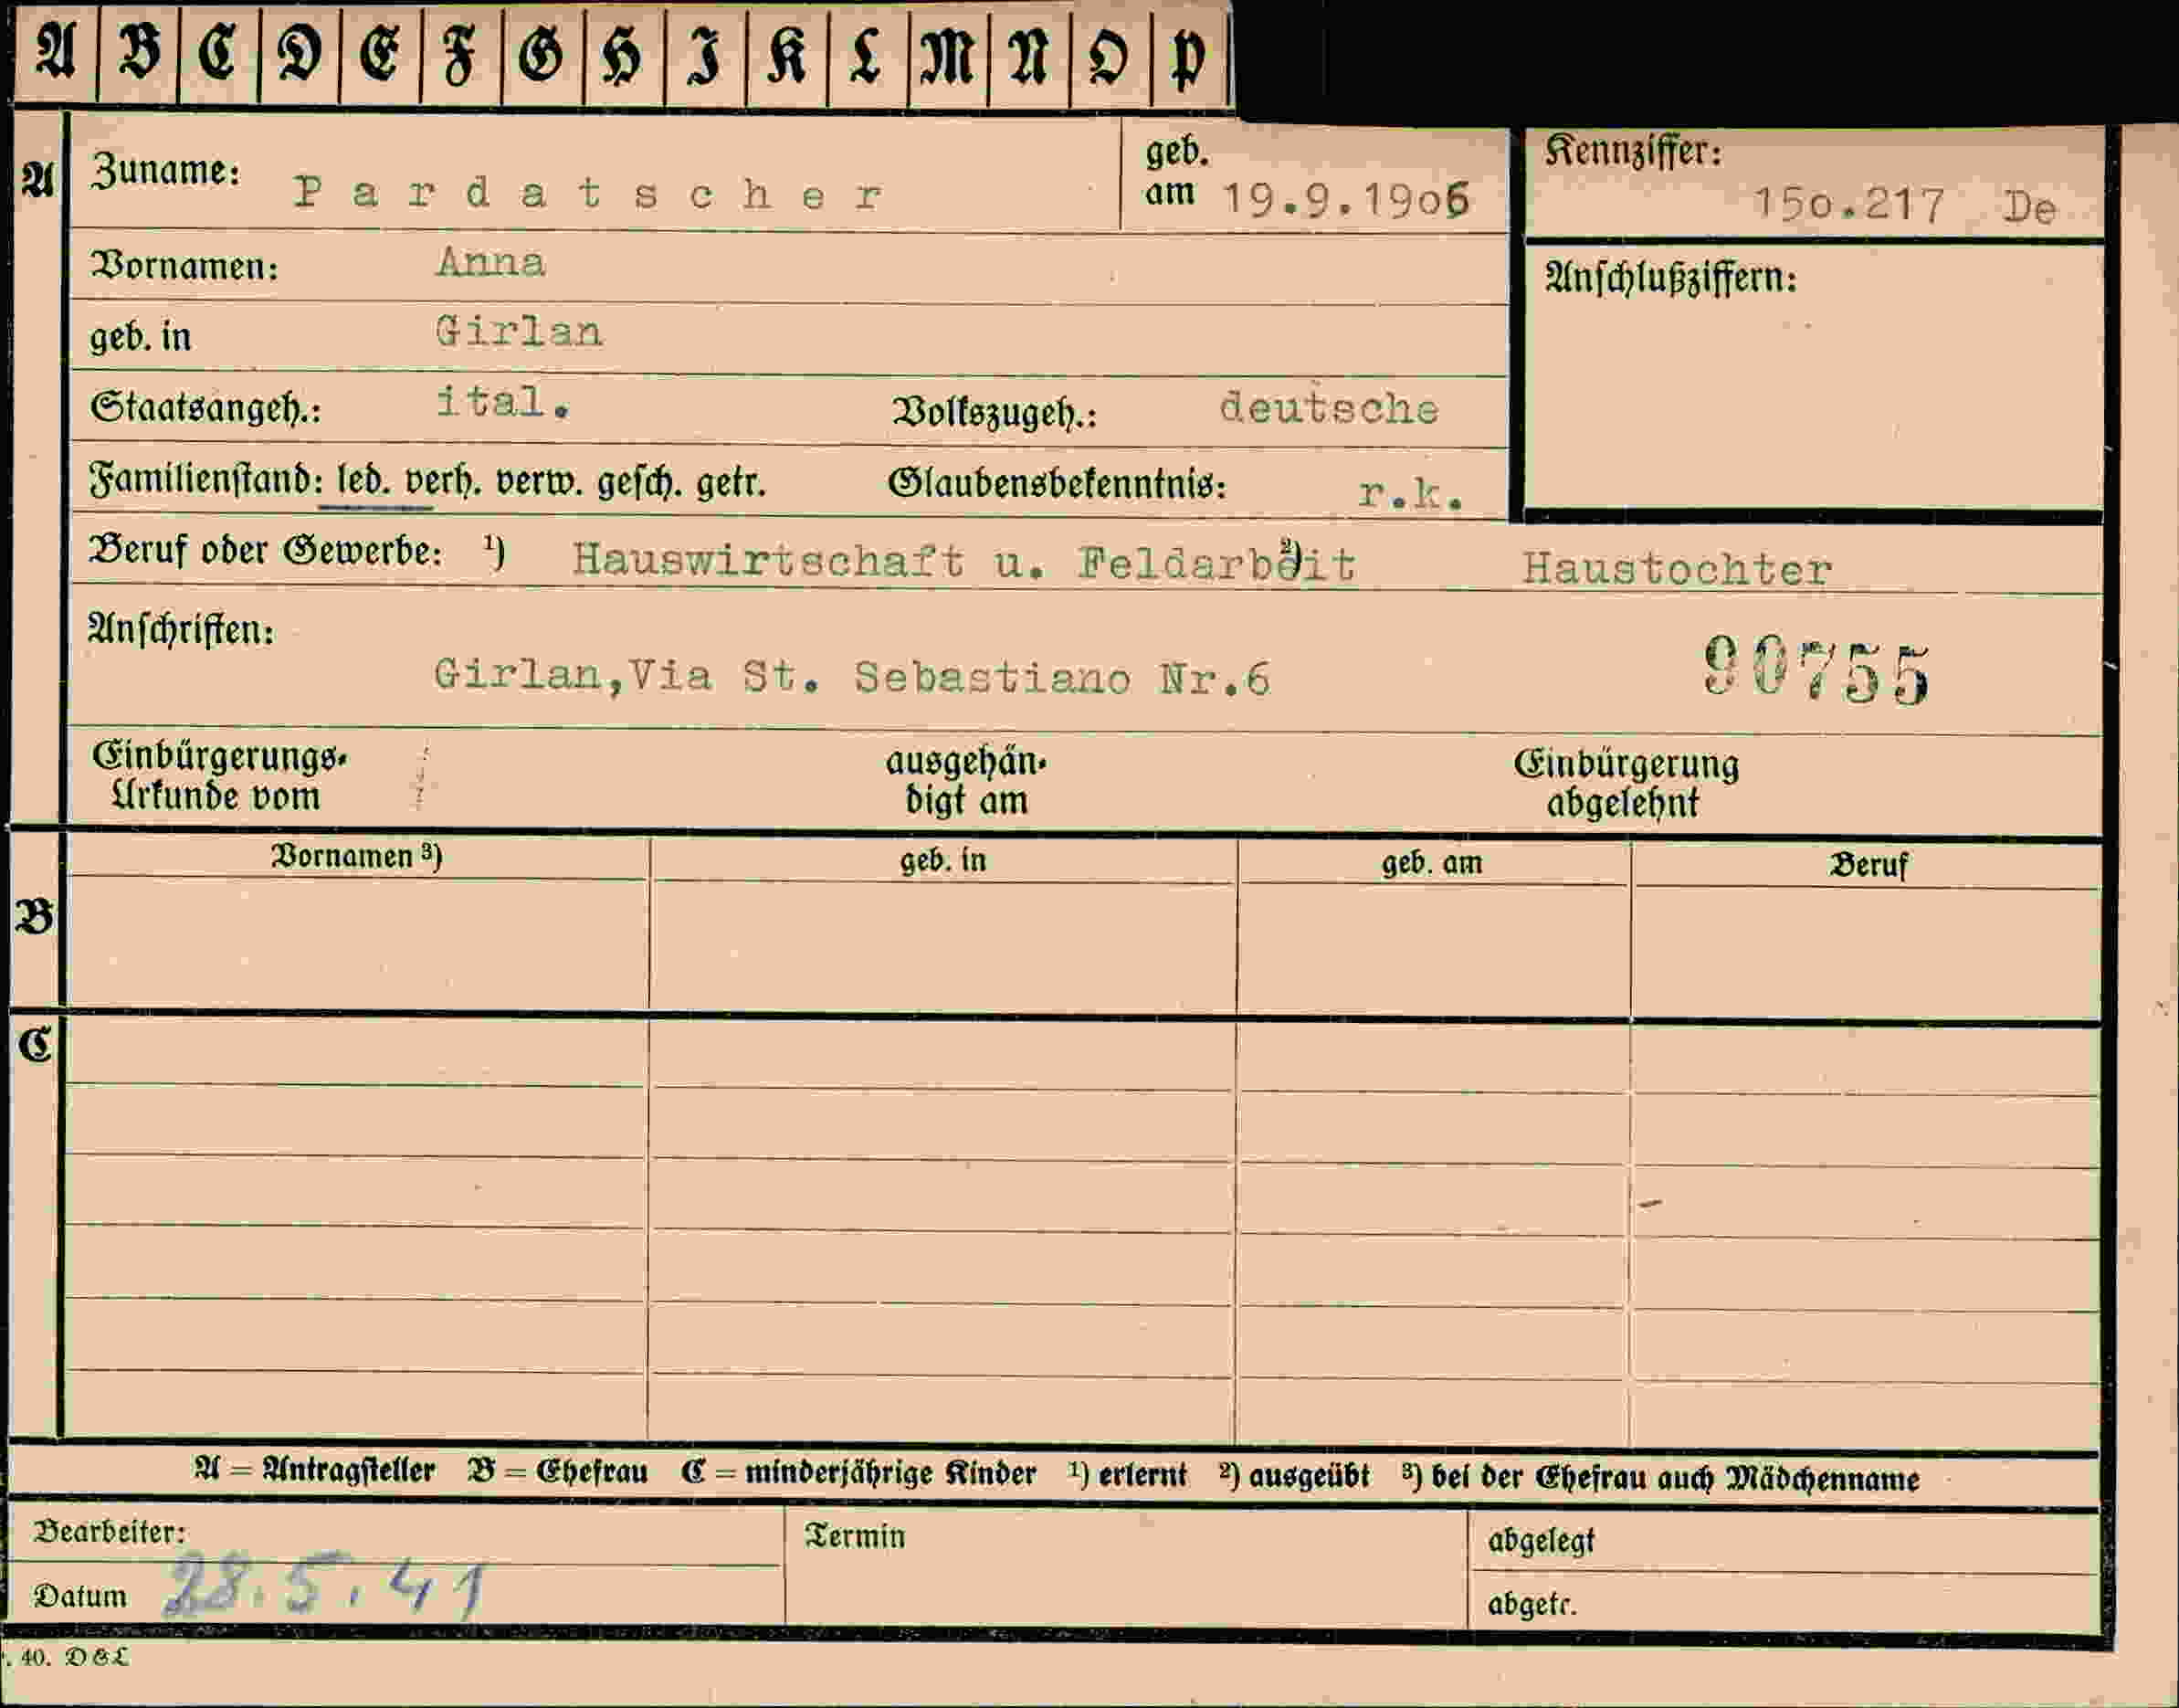 A B C D E F G H I K L M N O P
A
Zuname: Pardatscher
geb. am 19.9.1906
Kennziffer: 15o.217 De
Vornamen: Anna
Anschlußziffern:
geb. in Girlan
Staatsangeh.: ital. Volkszugeh.: deutsche
Familienstand: led. verh. verw. gesch. getr. Glaubensbekenntnis: r.k.
Beruf oder Gewerbe: ¹) Hauswirtschaft u. Feldarbeit ²) Haustochter
Anschriften:
Girlan,Via St. Sebastiano Nr.6
90755
Einbürgerungs-
Urkunde vom
ausgehän-
digt am
Einbürgerung
abgelehnt
B
Vornamen ³) geb. in geb. am Beruf
C
A = Antragsteller B = Ehefrau C = minderjährige Kinder ¹) erlernt ²) ausgeübt ³) bei der Ehefrau auch Mädchenname
Bearbeiter:
Termin
abgelegt
Datum 28.5.41
abgetr.
. 40. D&L